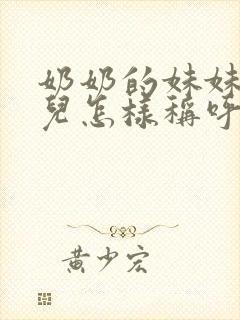 奶奶的妹妹
兒怎樣稱呼
黃少宏